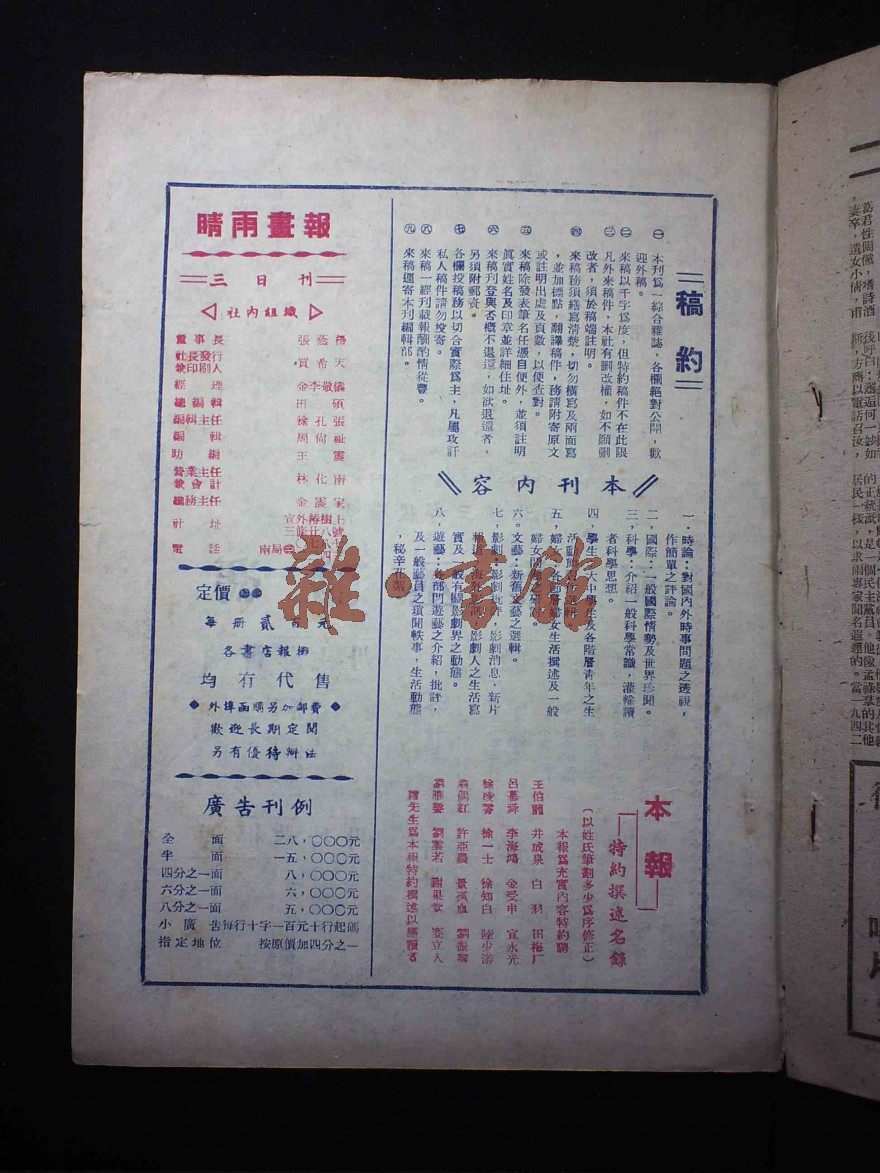 稿約
㊀ 本刊為一綜合雜誌，各欄絕對公開，歡
迎外稿。
㊁ 來稿以千字為度，但特約稿件不在此限
㊂ 凡外來稿件，本社有刪改權，如不願刪
改者，須於稿端註明。
㊃ 來稿務須繕寫清楚，切勿橫寫及兩面寫
，並加標點，翻譯稿件，務請附寄原文
或註明出處及頁數，以便查對。
㊄ 來稿除發表筆名任憑自便外，並須註明
真實姓名及印章並詳細住址。
㊅ 來稿刊登與否概不退還，如欲退還者，
另須附郵資。
㊆ 各欄投稿務以切合實際為主，凡屬攻訐
私人稿件請勿投寄。
㊇ 來稿一經刊載報酬酌情從豐。
㊈ 來稿逕寄本刊編輯部。
本刊內容
一．時論：對國內外時事問題之透視，
作簡單之評論。
二．國際：一般國際情勢及世界珍聞。
三．科學：介紹一般科學常識，灌輸讀
者科學思想。
四．學生：大中學生及各階層青年之生
活動
五．婦女：各階層婦女生活撰述及一般
婦女問
六．文藝：新舊文藝之選輯。
七．影劇：影劇批評，影劇消息，新片
報道，海外影劇人之生活寫
實及一般有關影劇界之動態。
八．遊藝：各部門遊藝之介紹，批評，
及一般藝員之瑣聞軼事，生活動態
，秘辛花絮。
本報
特約撰述名錄
（以姓氏筆劃多少為序修正）
本報為充實內容特約聘
王伯龍 井成泉 白羽 田梅厂
呂慕舜 李海鴻 金受申 宣永光
徐凌霄 徐一士 徐知白 陸少游
翁偶紅 許亞農 景孤血 劉振卿
劉雁聲 劉雲若 謝杲堂 蹇立人
諸先生為本報特約撰述以饜讀者
晴雨畫報
三日刊
社內組織
董事長 張蔭梧
社長發行
兼印刷人 賈希天
經理 金李敬儀
總編輯 田碩
編輯主任 徐孔張
編輯 周尙祉
助編 王震
營業主任
兼會計 林化南
總務主任 金震家
社址 宣外椿樹上
三條廿八號
電話 南局㊂
定價
每册貳百元
各書店報攤
均有代售
◆外埠函購另加郵費◆
歡迎長期定閱
另有優待辦法
廣告刊例
全面 二八，〇〇〇元
半面 一五，〇〇〇元
四分之一面 八，〇〇〇元
六分之一面 六，〇〇〇元
八分之一面 五，〇〇〇元
小廣告每行十字一百元十行起碼
指定地位 按原價加四分之一
雜·書館